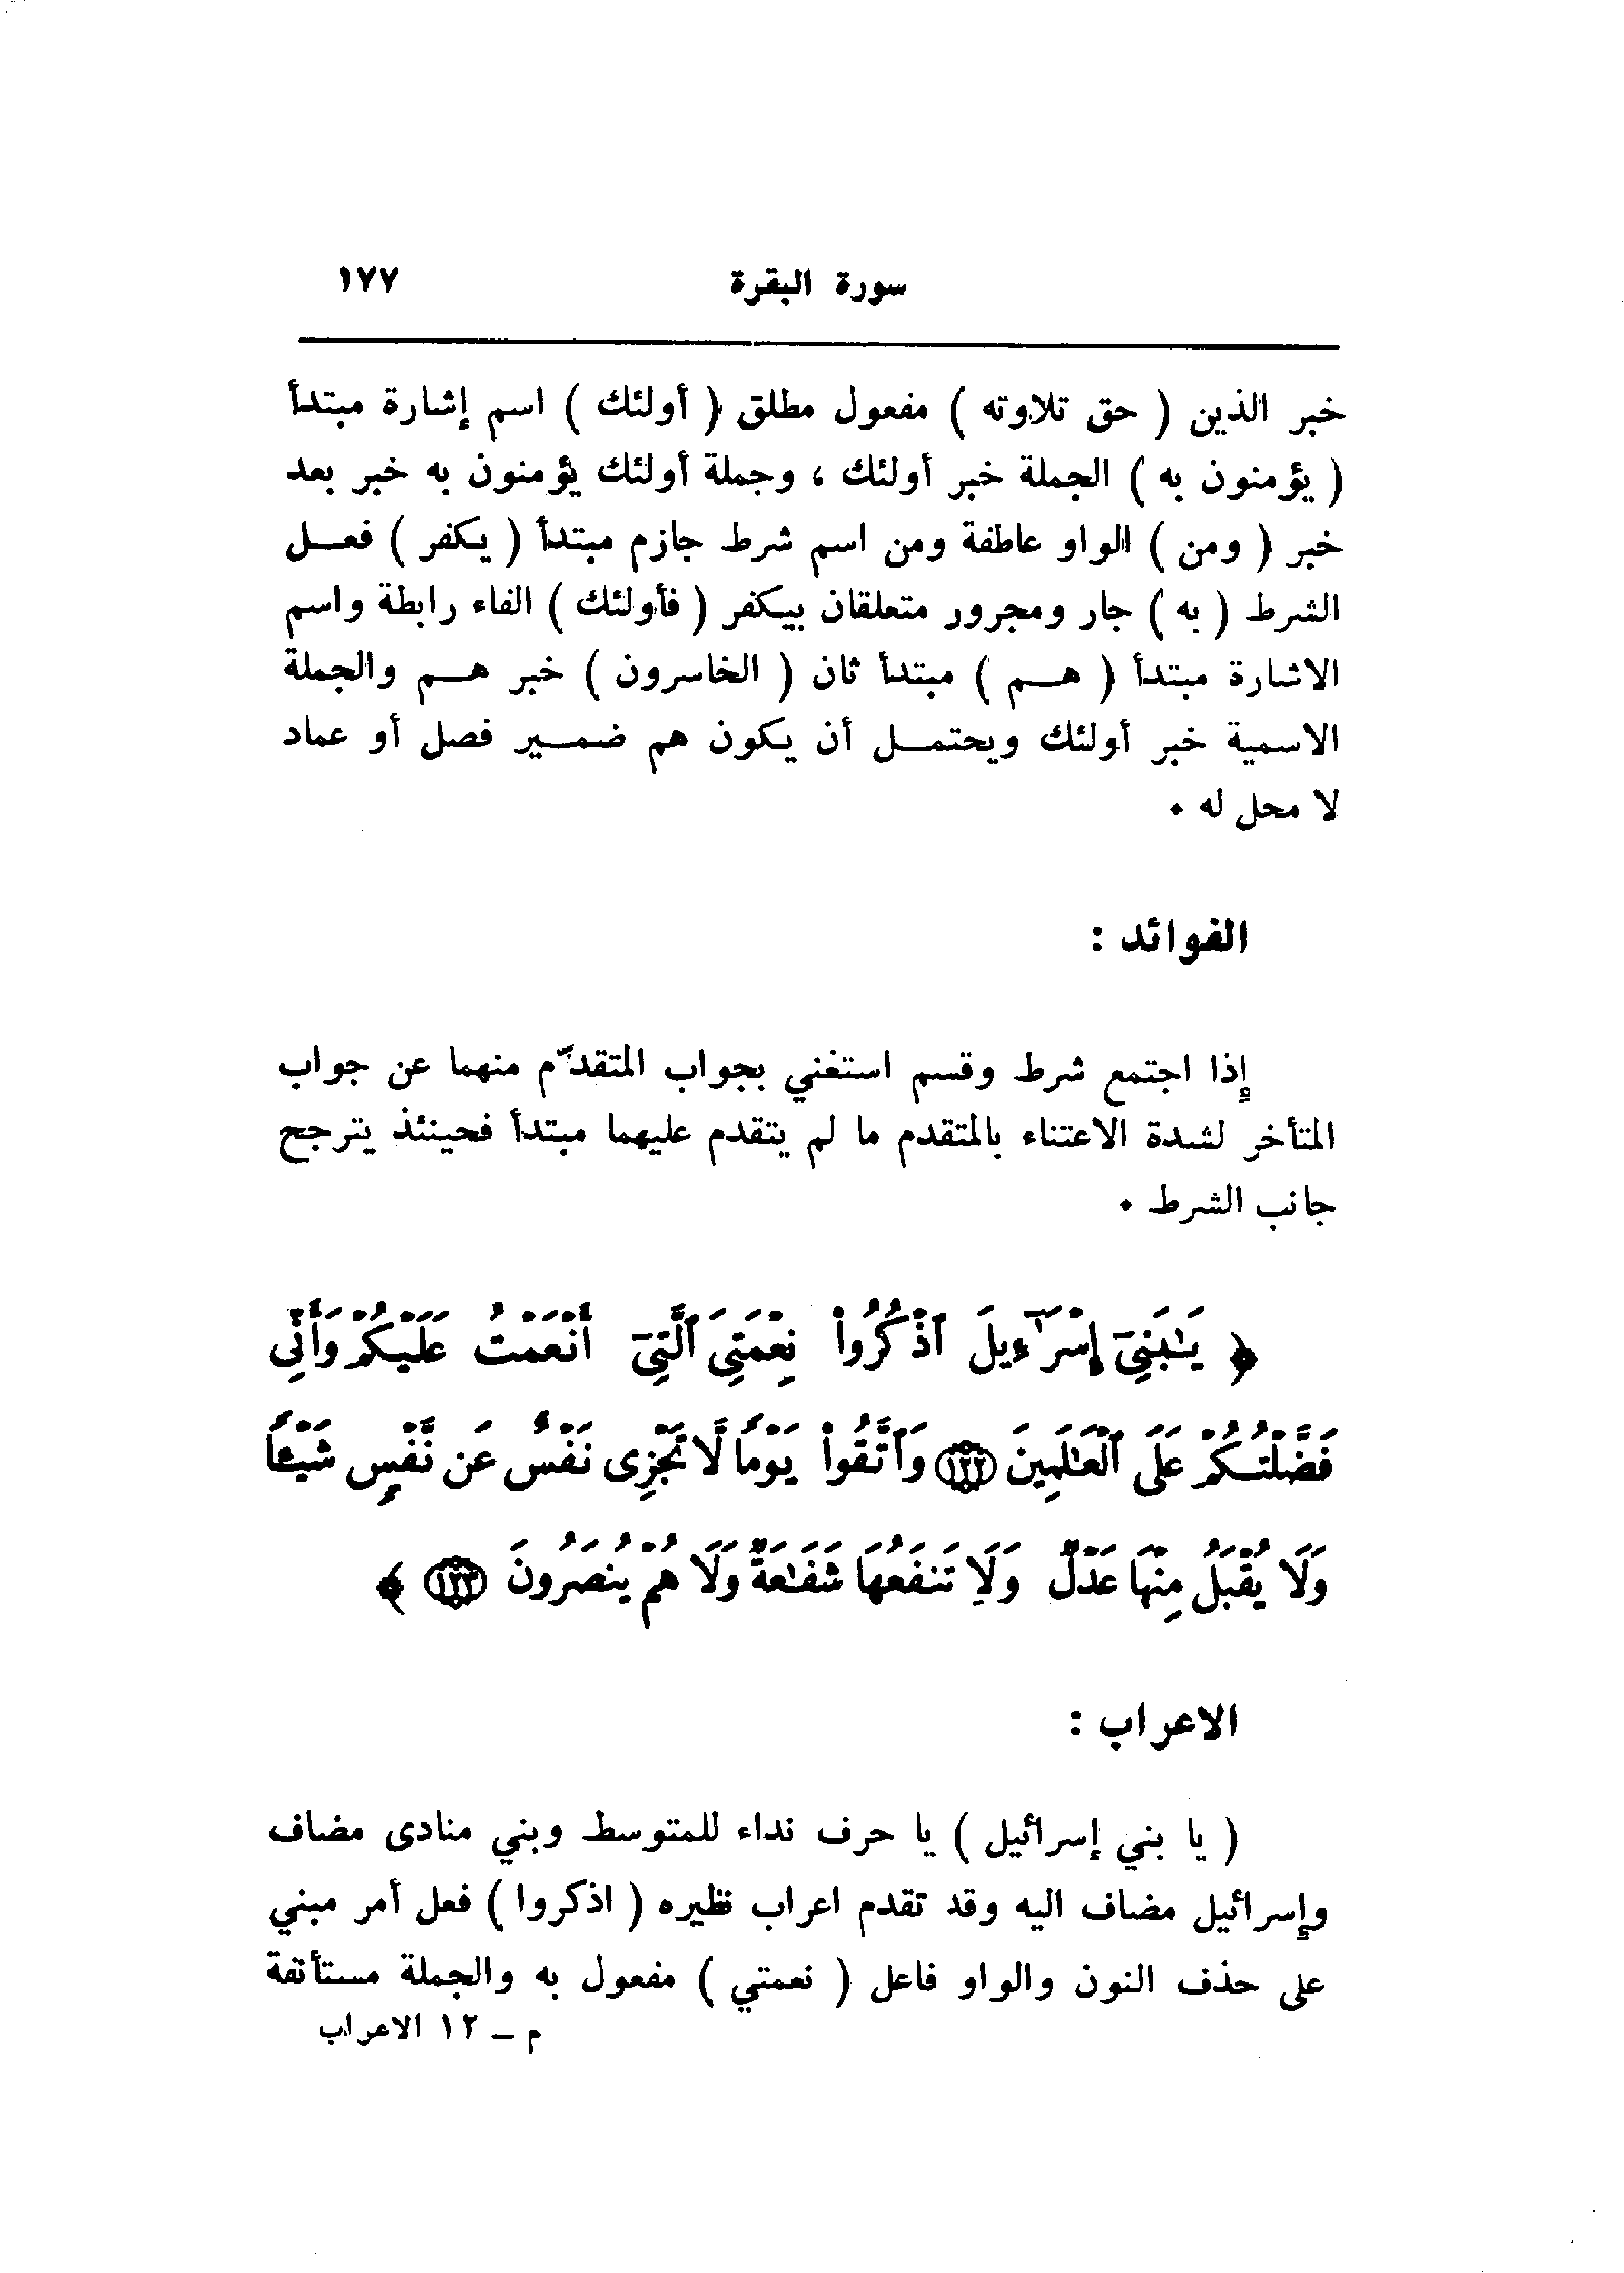 سورة البقرة ١٧٧
خبر الذين ( حق تلاوته ) مفعول مطلق ( أولئك ) اسم إشارة مبتدأ
( يؤمنون به ) الجملة خبر أولئك ، وجملة أولئك يؤمنون به خبر بعد
خبر ( ومن ) الواو عاطفة ومن اسم شرط جازم مبتدأ ( يكفر ) فعـــل
الشرط ( به ) جار ومجرور متعلقان بيكفر ( فأولئك ) الفاء رابطة واسم
الاشارة مبتدأ ( هـــم ) مبتدأ ثان ( الخاسرون ) خبر هـــم والجملة
الاسمية خبر أولئك ويحتمـــل أن يكون هم ضمـــير فصل أو عماد
لا محل له ٠
الفوائد :
إذا اجتمع شرط وقسم استغني بجواب المتقدّم منهما عن جواب
المتأخر لشدة الاعتناء بالمتقدم ما لم يتقدم عليهما مبتدأ فحينئذ يترجح
جانب الشرط ٠
﴿ يَـٰبَنِىٓ إِسْرَٰٓءِيلَ ٱذْكُرُوا۟ نِعْمَتِىَ ٱلَّتِىٓ أَنْعَمْتُ عَلَيْكُمْ وَأَنِّى
فَضَّلْتُكُمْ عَلَى ٱلْعَـٰلَمِينَ ﴿١٢٢﴾ وَٱتَّقُوا۟ يَوْمًا لَّا تَجْزِى نَفْسٌ عَن نَّفْسٍ شَيْـًٔا
وَلَا يُقْبَلُ مِنْهَا عَدْلٌ وَلَا تَنفَعُهَا شَفَـٰعَةٌ وَلَا هُمْ يُنصَرُونَ ﴿١٢٣﴾ ﴾
الاعراب :
( يا بني إسرائيل ) يا حرف نداء للمتوسط وبني منادى مضاف
وإسرائيل مضاف اليه وقد تقدم اعراب نظيره ( اذكروا ) فعل أمر مبني
على حذف النون والواو فاعل ( نعمتي ) مفعول به والجملة مستأنفة
م ــ ١٢ الاعراب